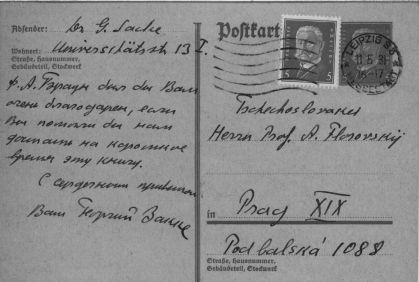 Absender: Dr. G. Sacke
Wohnort: Universitätsstr 13 I.
Straße, Hausnummer,
Gebäudeteil, Stockwerk
ф. А. Браун был бы Вам
очень благодарен, если
Вы помогли бы нам
достать на короткое
время эту книгу.
С сердечным приветом
Ваш Георгий Закке
Postkart
5 5
LEIPZIG
16-17
Tschechoslovakei
Herrn Prof. A. Florovskij
in Prag XIX
Podbabská 1088
Straße, Hausnummer,
Gebäudeteil, Stockwerk